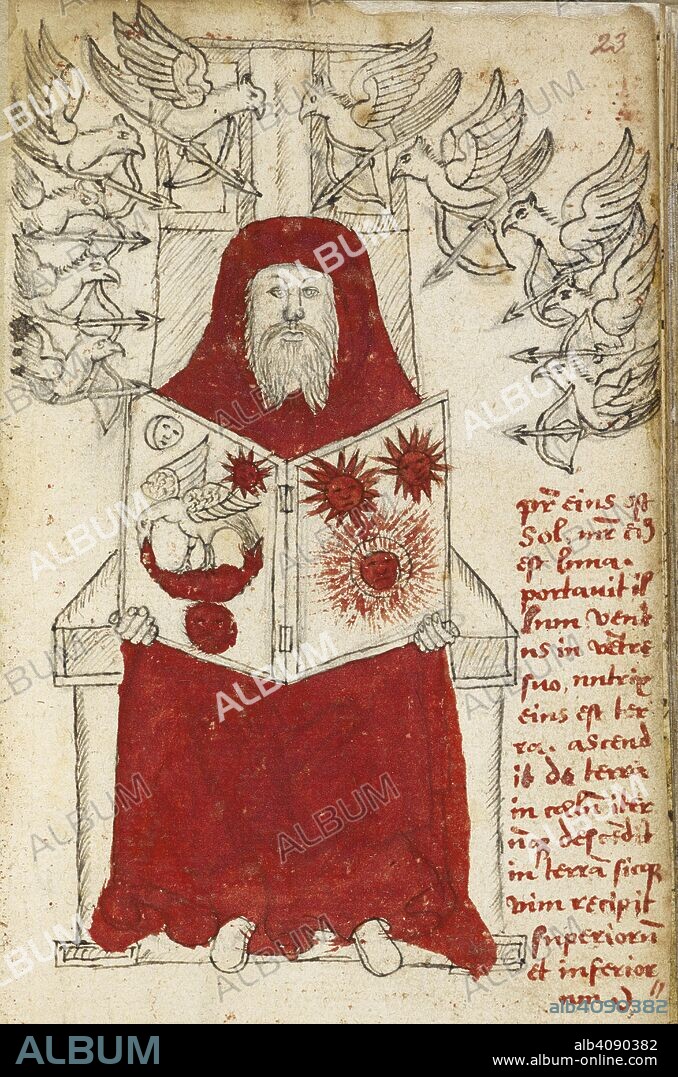 23
pr̄ eius est
Sol, mr̄ ei9
est luna.
portauit il
lum vent
us in vētre
suo, nutrix
eius est ter
ra. ascend
it de terra
in celum iter
descēdit
in terrā sicqꝫ
vim recipit
superiorū
et inferior
ALBUM
alb4090382
ALBUM
alb4090382
www.album-online.com